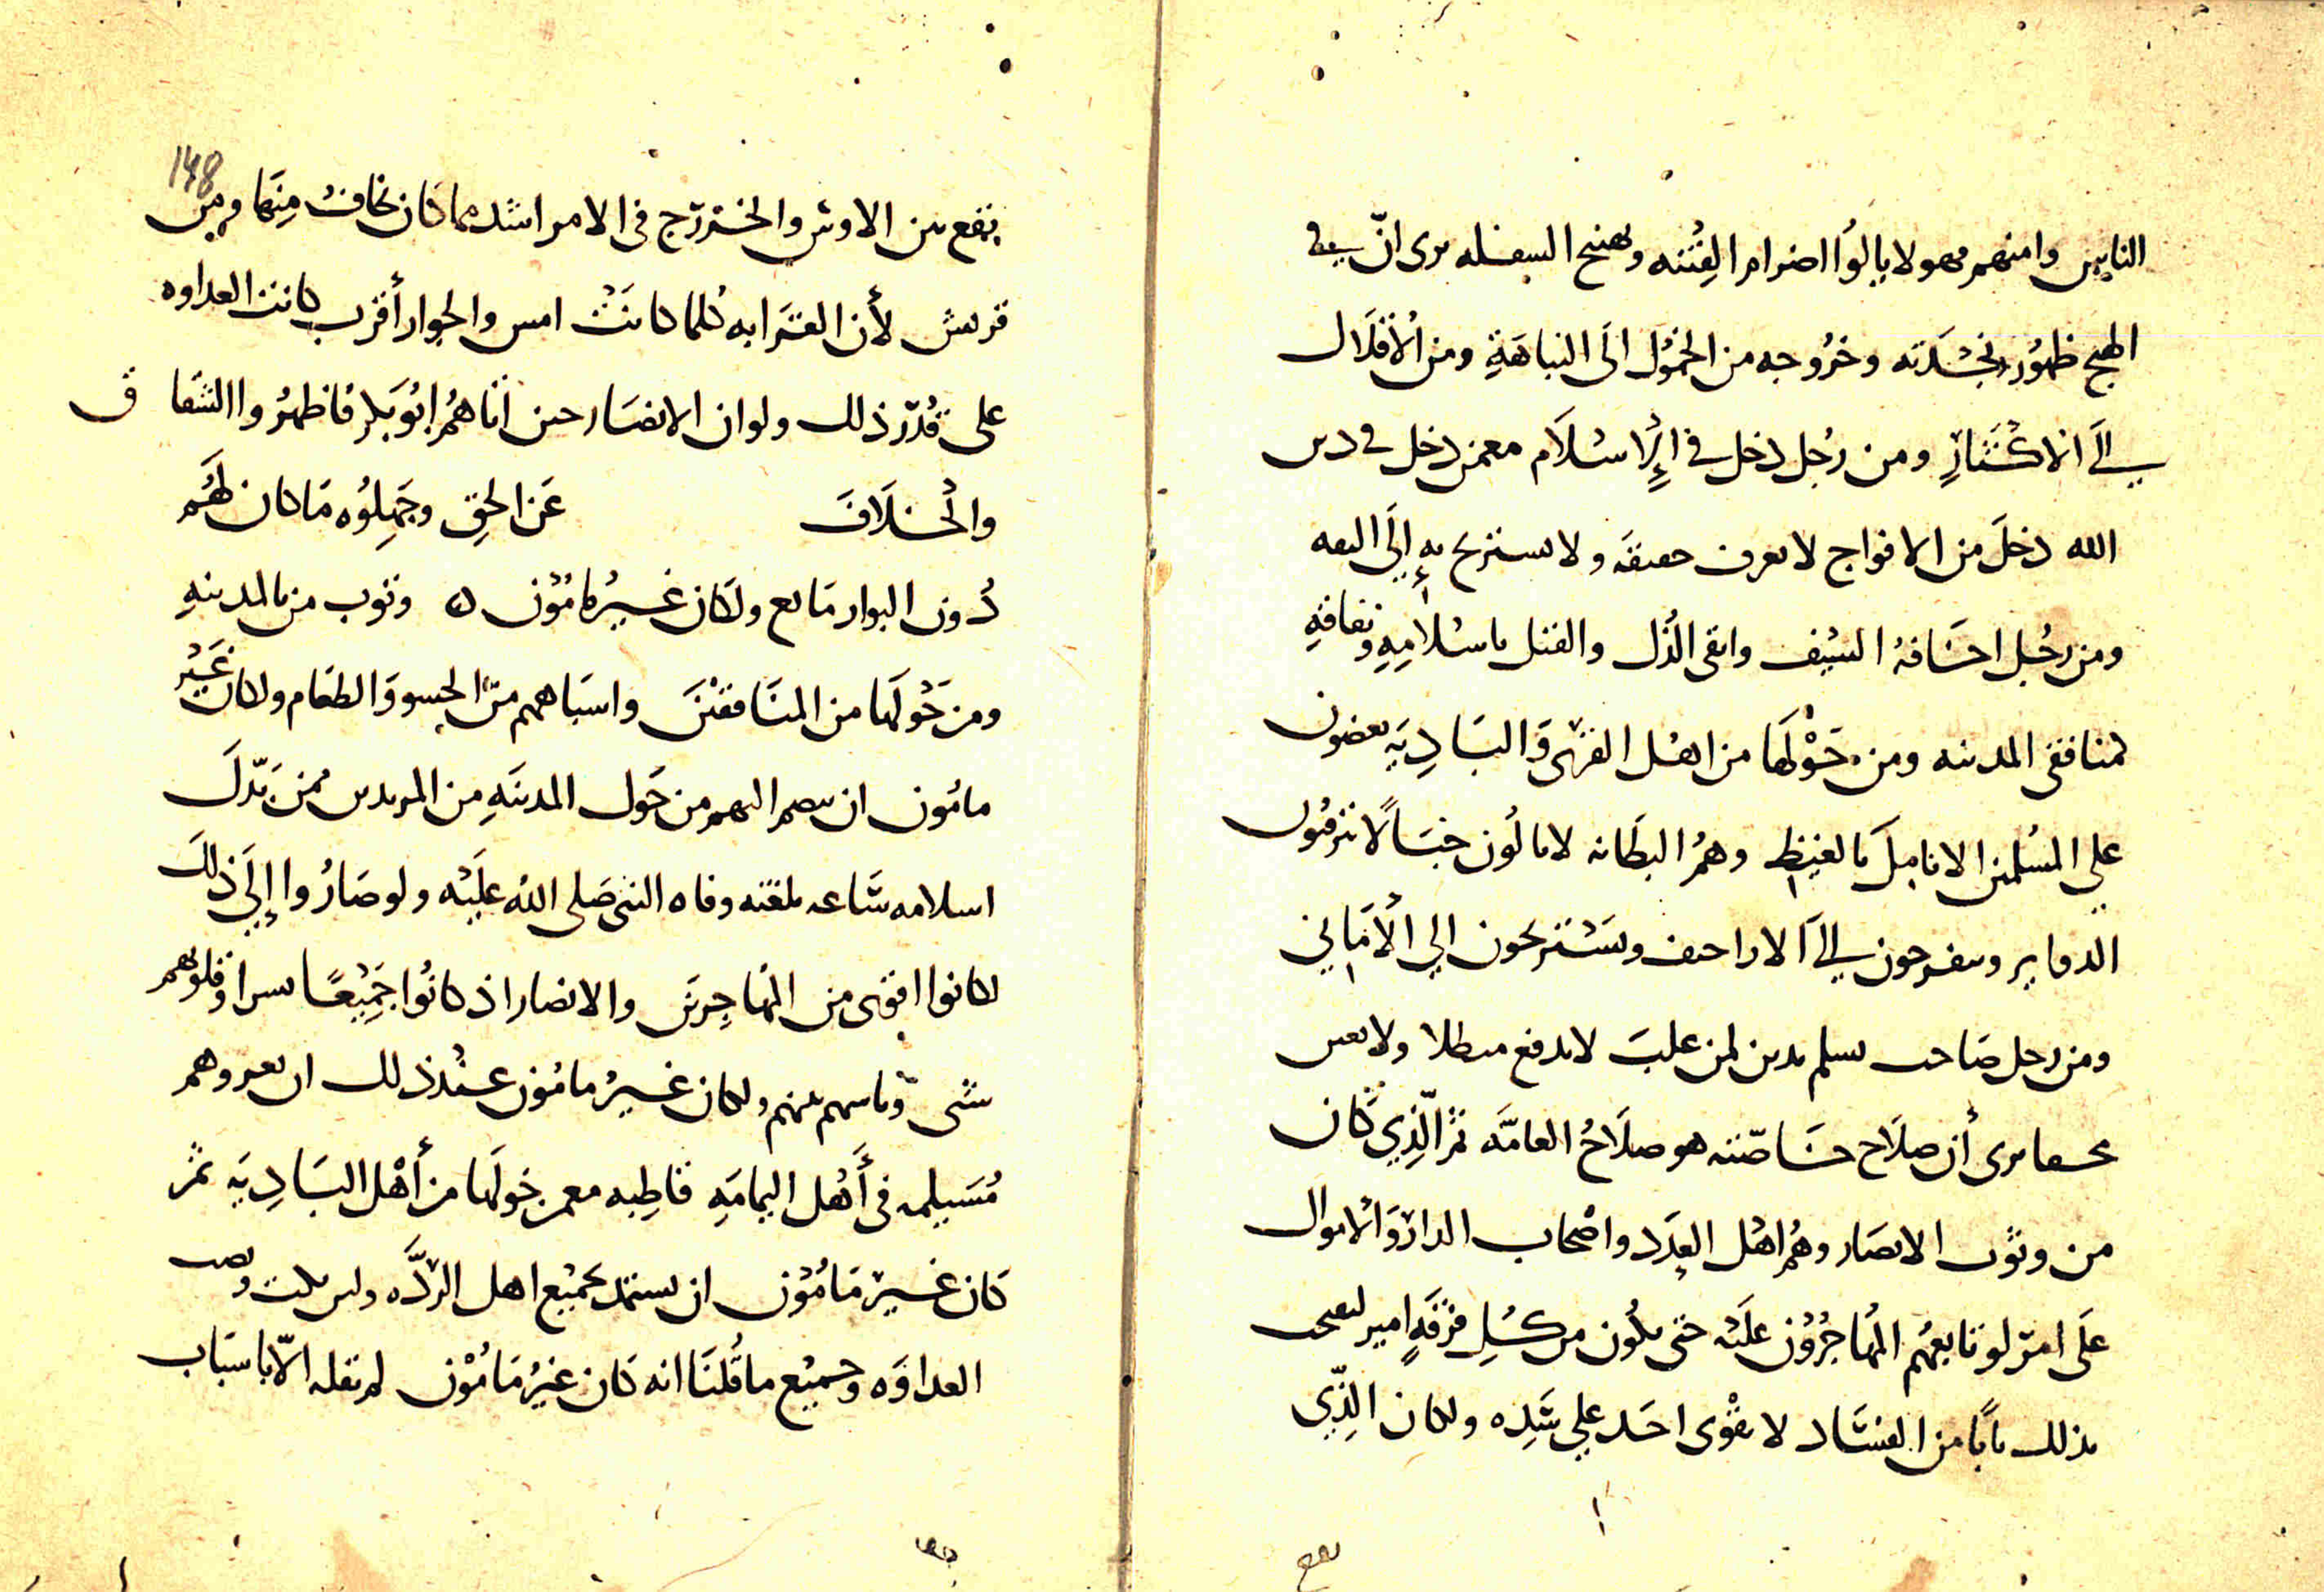 الناس وامنهم وهولا يالوا اضرام الفتنه وتهييج السفله يرى ان في
الهيج ظهور نجدته وخروجه من الخمول الى النباهة ومن الاقلال
الى الاكثار ومن رجل دخل في الإسلام معمن دخل في دين
الله دخل من الافواج لا يعرف حقيقه ولا يستريح به إلى الثقه
ومن رجل اخافه السيف واتقى الذل والقتل باسلامه ونفاقه
لمنافقى المدينه ومن حولها من اهل القرى والباديه يعضون
على المسلمين الانامل بالغيظ وهم البطانه لا يالون خبالا يترقبون
الدواير وينفرجون الى الاراجيف ويستريحون الي الأماني
ومن رجل صاحب يسلم يدين لمن غلب لا يدفع مبطلا ولا يعين
محقا يرى أن صلاح خاصته هو صلاح العامه ثم الذي كان
من وثوب الانصار وهم اهل العدد واصحاب الدار والاموال
على امر لو تابعهم المهاجرون عليه حتى يكون من كل فرقة امير
بذلك بابا من الفساد لا يقوى احد على سده ولكان الذي
يقع
يقع بين الاوس والخزرج في الامر اشد مما كان يخاف منها ومن 148
قريش لأن القرابه كلما كانت امس والجوار أقرب كانت العداوه
على قدر ذلك ولو ان الانصار حين اتاهم ابو بكر فاظهروا الشقاق
والخلاف عن الحق وجهلوه ما كان لهم
دون البوار مانع ولكان غير مامون ه وثوب من بالمدينه
ومن حولها من المنافقين واشباههم من الحسو والطغام ولكان غير
مامون ان يضم اليهم من حول المدينه من المرتدين ممن بدل
اسلامه ساعه بلغته وفاه النبى صلى الله عليه ولو صاروا إلى ذلك
لكانوا اقوى من المهاجرين والانصار اذ كانوا جميعا وقلوبهم
شتى وباسهم بينهم ولكان غير مامون عند ذلك ان يغزوهم
مسيلمه في أهل اليمامه قاطبه معمن حولها من أهل الباديه ثم
كان غير مامون ان يستمد بجميع اهل الردَّه
العداوه وجميع ما قلنا انه كان غير مامون لم نقله الا باسباب